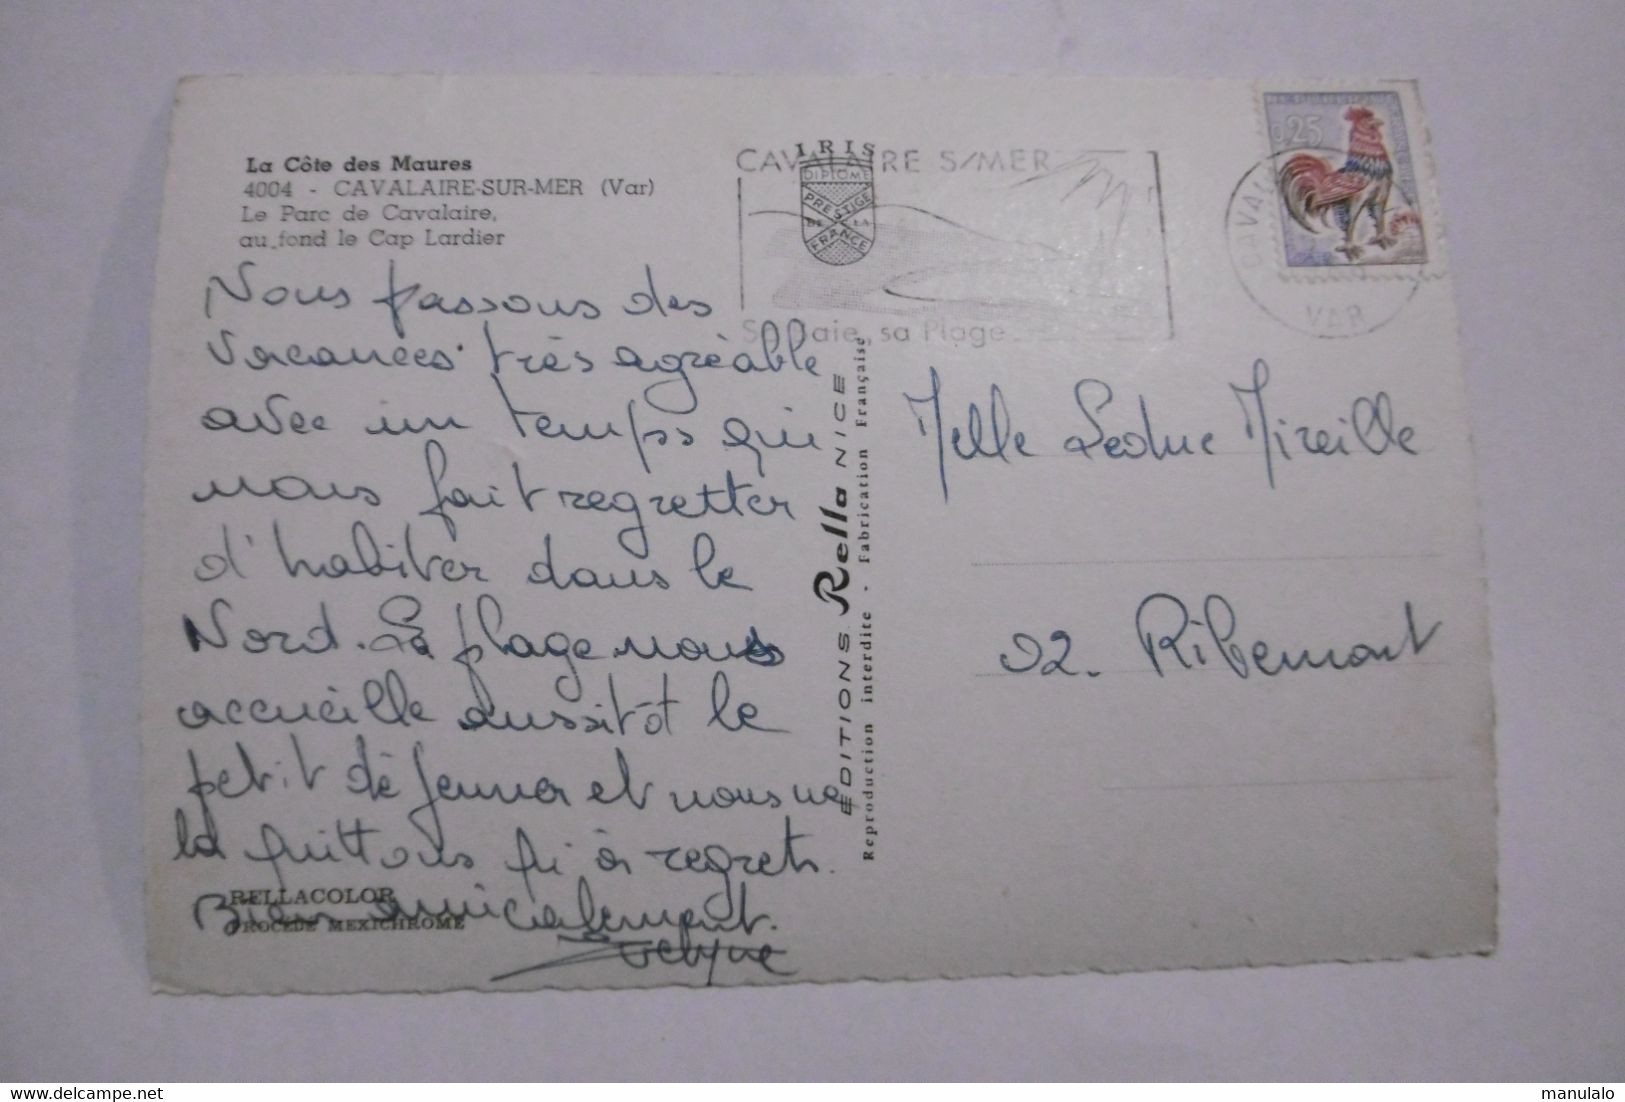 La Côte des Maures
4004 - CAVALAIRE-SUR-MER (Var)
Le Parc de Cavalaire,
au fond le Cap Lardier
Nous passons des
vacances très agréable
avec un temps qui
nous fait regretter
d'habiter dans le
Nord. La plage nous
accueille aussitôt le
petit déjeuner et nous ne
la quittons qu'à regrets.
Bien amicalement.
Evelyne
RELLACOLOR
PROCÉDÉ MEXICHROME
IRIS
DIPLOME
PRESTIGE
DE LA
FRANCE
CAVALAIRE S/MER
Sa Baie, sa Plage
EDITIONS Rella NICE
Reproduction interdite - Fabrication Française
0,25
VAR
Melle Leduc Mireille
02. Ribemont
manulalo